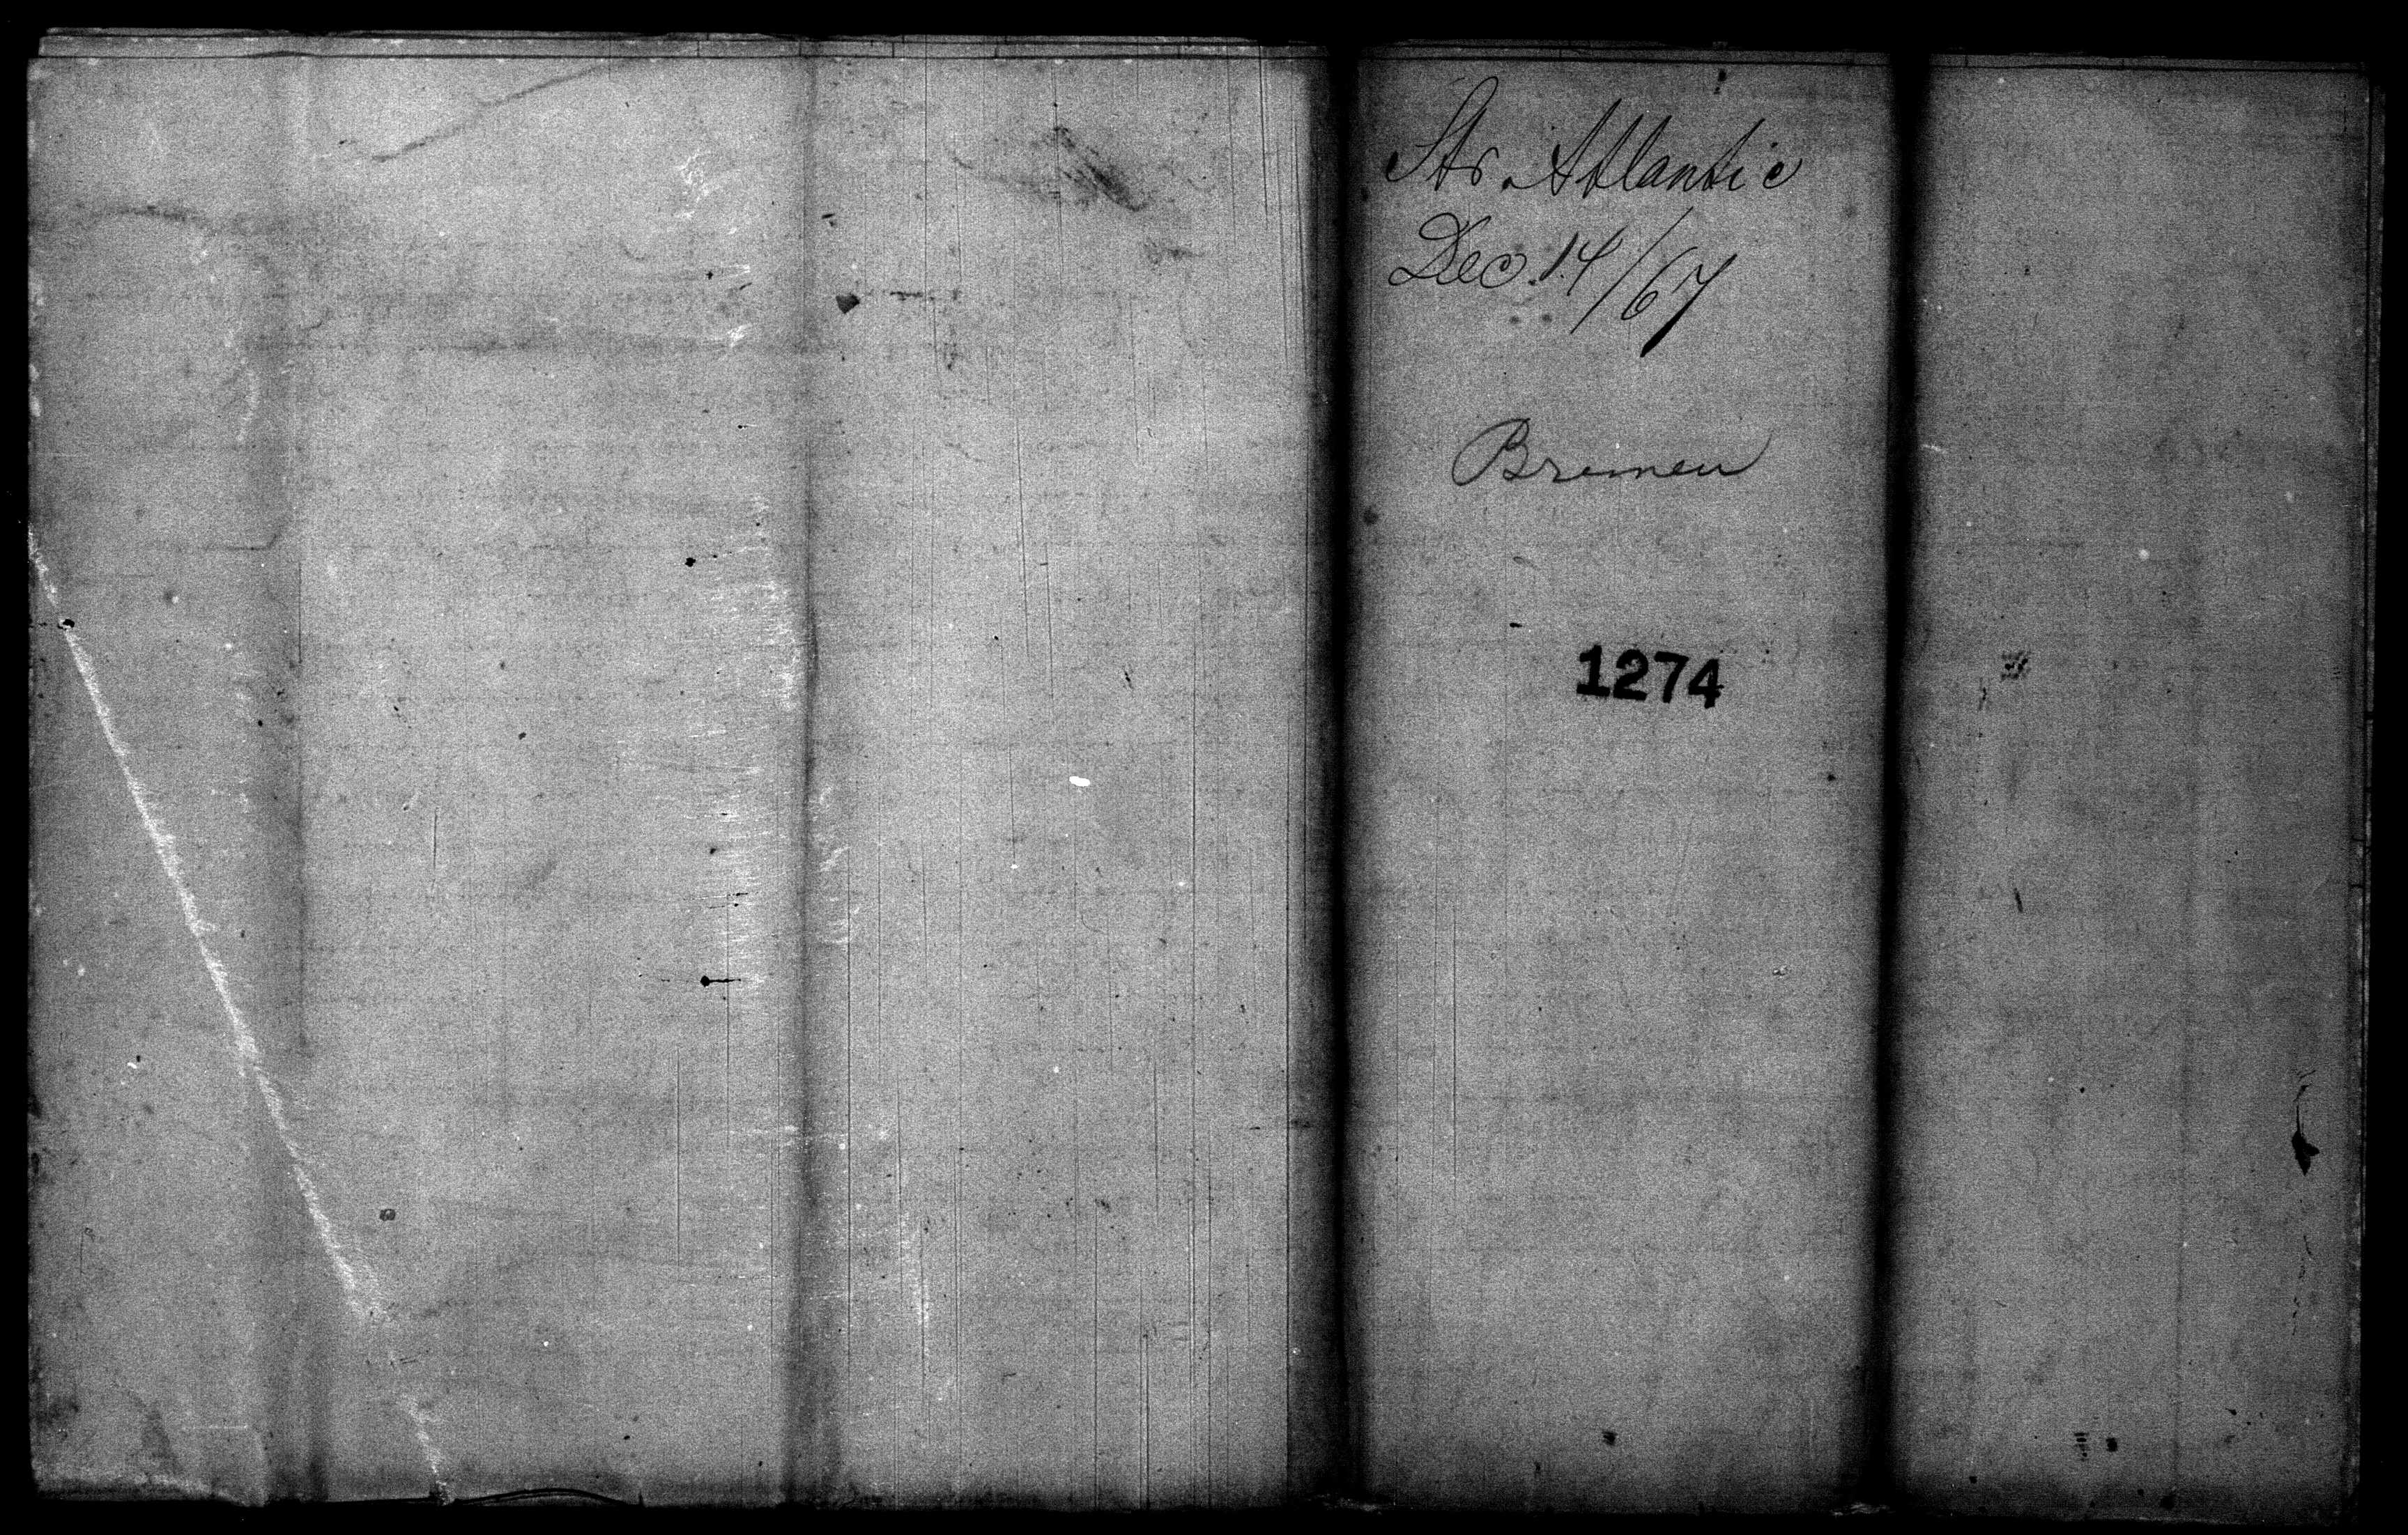 Str. Atlantic
Dec. 14/67
Bremen
1274